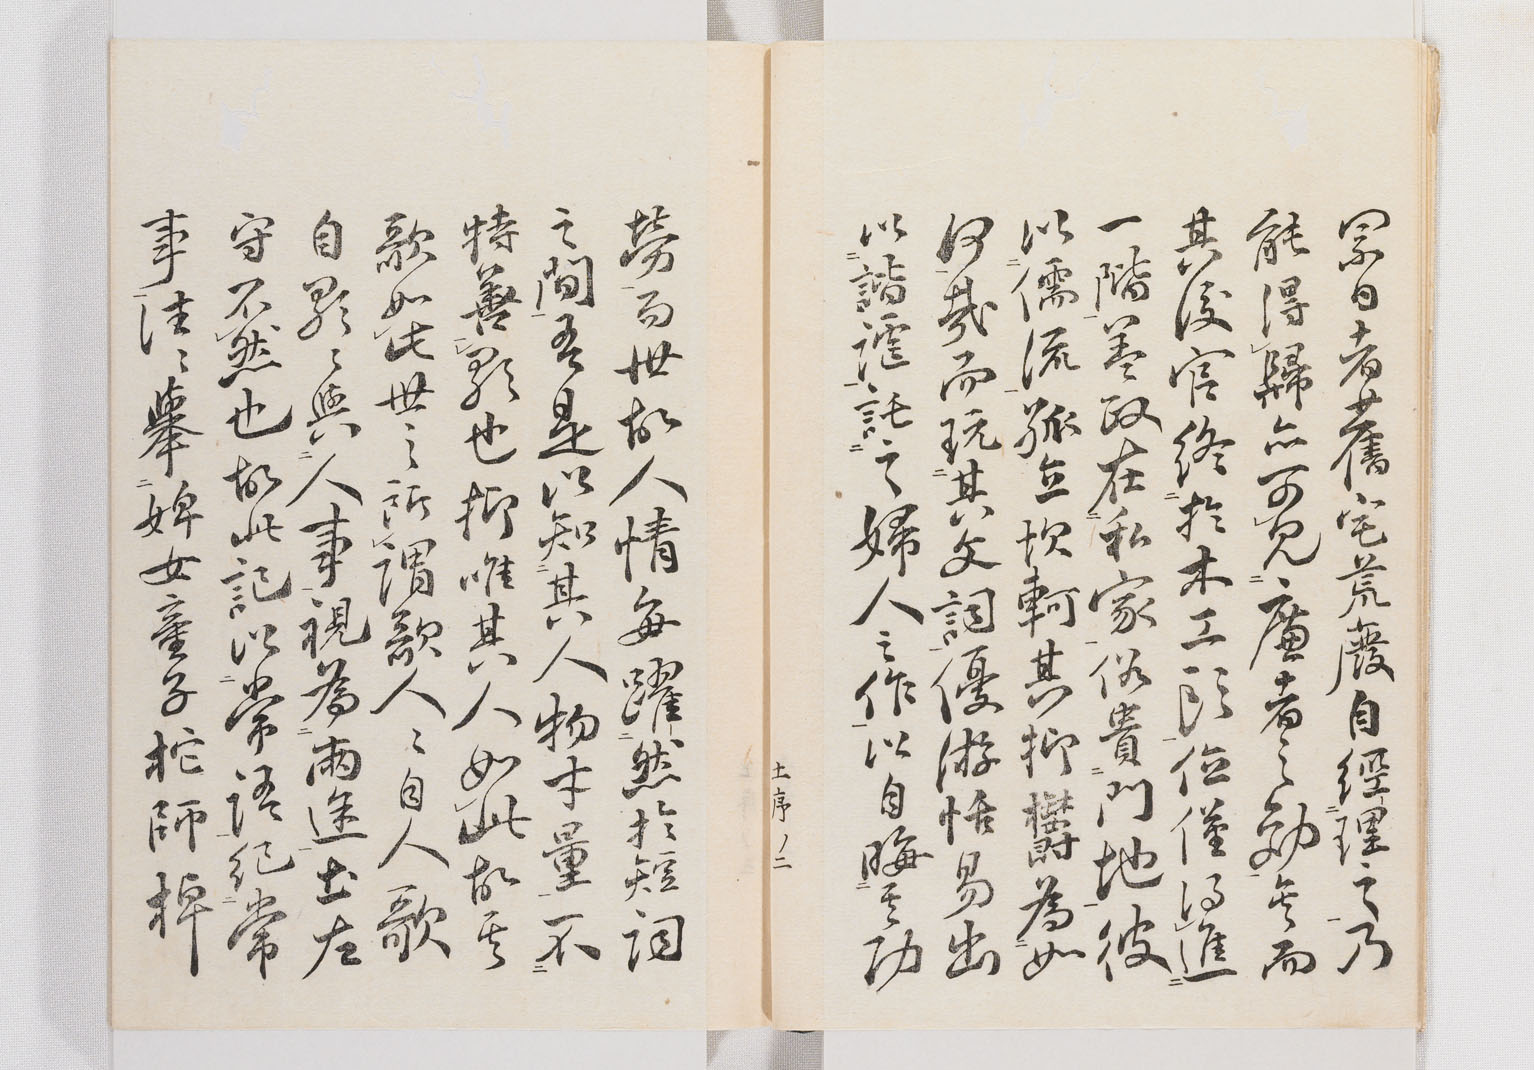 累日者舊宅荒廢自經理之乃
能得歸亦可見廉者之効矣而
其後官終於木工頭位僅得進
一階蓋政在私家俗貴門地彼
以儒流孤立坎軻其抑欝為如
何哉而玩其文詞優游恬易出
以諧謔託之婦人之作以自晦其功
土序ノ二
勞而世故人情每躍然於短詞
之間吾是以知其人物才量不
特善歌也抑唯其人如此故其
歌如此世之所謂歌人々自人歌
自歌々與人事視為兩途土左
守不然也故此記以常語紀常
事往々舉婢女童子柁師棹